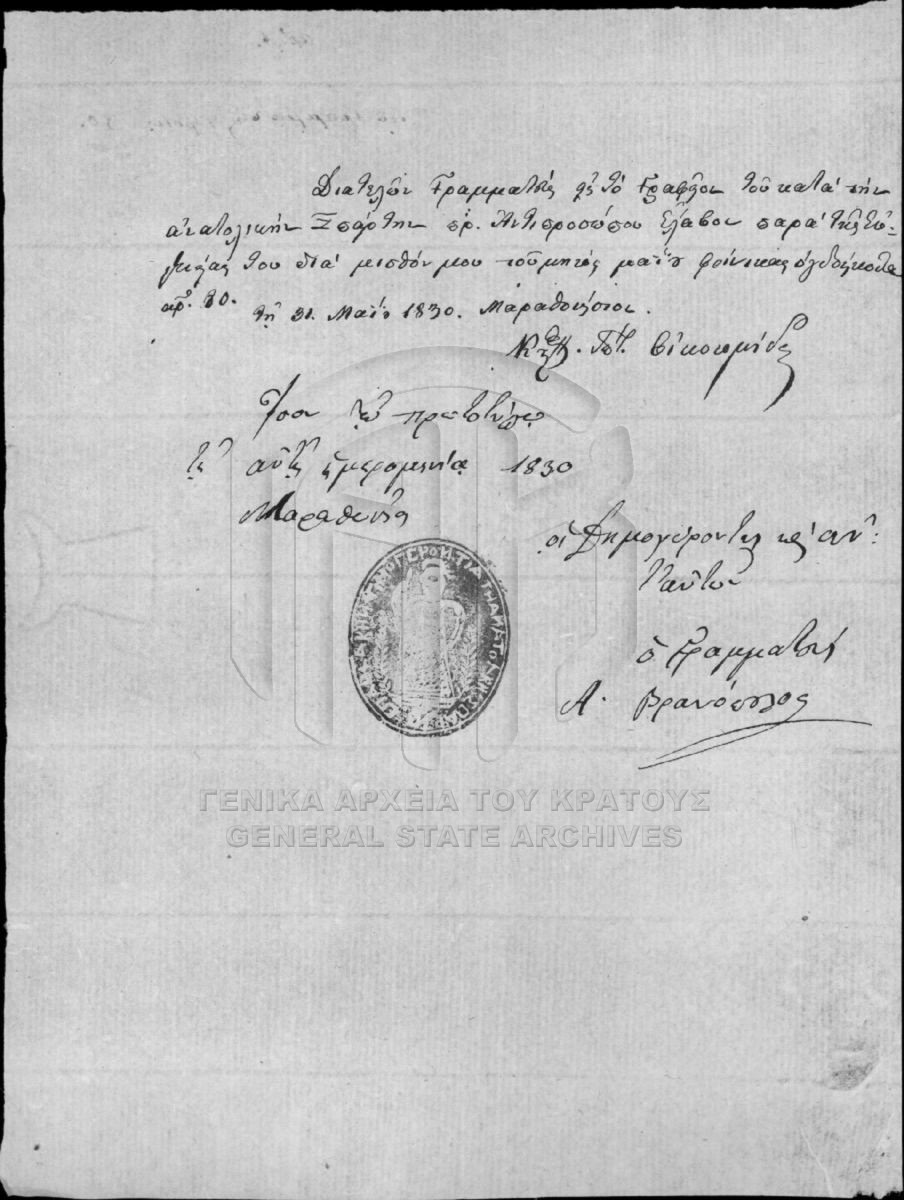 Διατελῶν Γραμματεὺς εἰς τὸ Γραφεῖον τοῦ κατὰ τὴν
ἀνατολικὴν Σπάρτην πρ. Ἀντιπροσώπου ἔλαβον παρὰ τῆς Ἐξο-
του διὰ μισθόν μου τοῦ μηνός μαΐου φοίνικας ὀγδοήκοντα
ἀρ. 80.
τῇ 31. Μαΐου 1830. Μαραθονήσιον.
Οἰκονομίδης
Ἴσον τῷ πρωτοτύπῳ
τῇ αὐτῇ ἡμερομηνίᾳ 1830
Μαραθονήσι
οἱ Δημογέροντες κ ἀντ'
αὐτῶν
ὁ Γραμματεύς
Α. Βρανόπουλος
ΓΕΝΙΚΑ ΑΡΧΕΙΑ ΤΟΥ ΚΡΑΤΟΥΣ
GENERAL STATE ARCHIVES